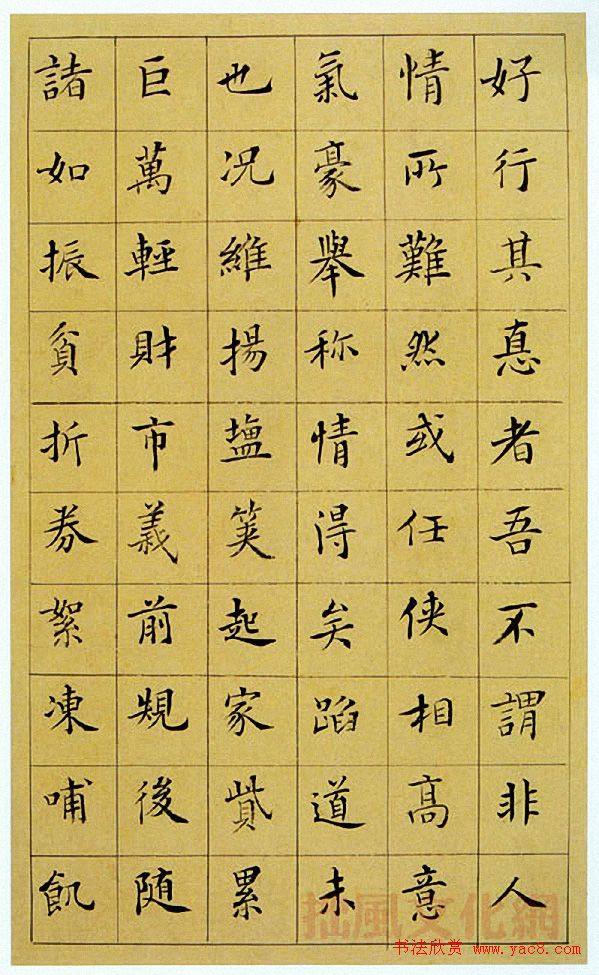 好行其惪者吾不謂非人
情所難然或任俠相高意
氣豪舉称情得矣蹈道未
也况維揚塩筴起家貲累
巨萬輕財市義前規後随
諸如振貧折券絮凍哺飢
拙風文化網
书法欣赏 www.yac8.com